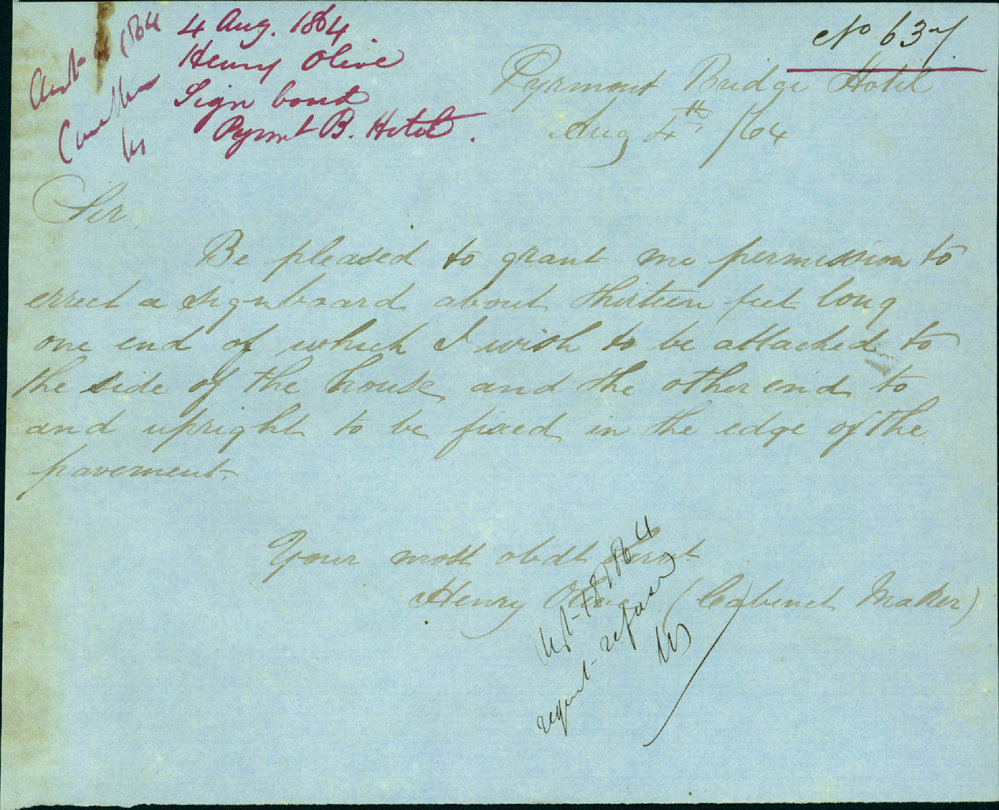 4 Aug. 1864
Henry Olive
Sign board
Pyrmt B. Hotel.
No 637
Pyrmont Bridge Hotel
Aug 4th /64
Sir
Be pleased to grant me permission to
erect a signboard about thirteen feet long
one end of which I wish to be attached to
the side of the house and the other end to
and upright to be fixed in the edge of the
pavement.
Your most obdt servt
Henry Olive (Cabinet Maker)
1864
request refused